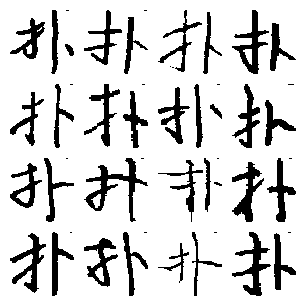 扑扑扑扑
扑扑扑扑
扑扑扑扑
扑扑扑扑